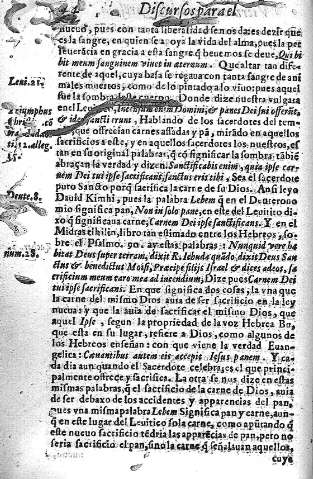 Discursos para el
nuevo, pues con tanta liberalidad se nos da: es dezir que
es la sangre, en quien se a oya la vida del alma, pues la per
seuerãcia en gracia a esta sangre q̃ beuemos se deue, Qui bi
bit meum sanguinem viuet in æternum. Que altar tan dife
rente de aquel, cuya basa se regaua con tanta sangre de ani
males muertos, como de lo pintado a lo viuo: pues aquel
fue la sombra cuerpo. Donde dize nuestra vulgata
en el Domini, & panes Dei sui offerũt,
& ideo sancti erunt, Hablando de los sacerdotes del tem
que ofrecian carnes assadas y pã, mirãdo en aquellos
sacrificios a este, y en aquellos sacerdotes los nuestros, es
tan en su original palabras, q̃ cõ significar la sombra tãbiẽ
abraçan la verdad y dizen. Sanctificabis enim, quia ipse car-
nem Dei tui ipse sacrificãt, sanctus erit tibi, Sea el sacerdote
puro Sancto porq̃ sacrifica la carne de su Dios. Ansi leyo
Dauid Kimhi, pues la palabra Lehem q̃ en el Deuterono
mio significa pan, Non in solo pane, en este del Leuitico di
xo q̃ significaua carne, Carnem Dei ipse sanctificans. Y en el
Midras tehilin, libro tan estimado entre los Hebreos, so-
bre el Psalmo. 90. ay estas palabras: Nunquid vere ha
bitat Deus super terram, dixit R. Iehuda quãdo, dixit Deus San
ctus & benedictus Moisi, Præcipe filijs Israel & dices adeos, sa
crificium meum caro mea al incendium, Dize pues Carnem Dei
tui ipse sacrificans. En que significa dos cosas, la vna que
la carne del mismo Dios auia de ser sacrificio en la ley
nueua: y que la auia de sacrificar el mismo Dios, que
aquel Ipse, segun la propriedad de la voz Hebrea Hu,
que esta en su lugar, refiere a Dios, como algunos de
los Hebreos enseñan: con que viene la verdad Euan-
gelica: Cænantibus autem eis accepit Iesus panem. Y ca-
da dia aun quando el Sacerdote celebra, es el que princi-
palmente ofrece y sacrifica. La otra se nos dize en estas
mismas palabras, q̃ el sacrificio de la carne de Dios, auia
de ser debaxo de los accidentes y apparencias del pan,
pues vna misma palabra Lehem Significa pan y carne, aun-
q̃ en este lugar del Leuitico sola carne, como apũtando q̃
este nueuo sacrificio tẽdria las apparẽcias de pan, pero no
seria sacrificio el pan, sino la carne q̃ señalauan aquellos,
cuya
Leui. 21.
Triumphus
Deute. 8.
num. 28.